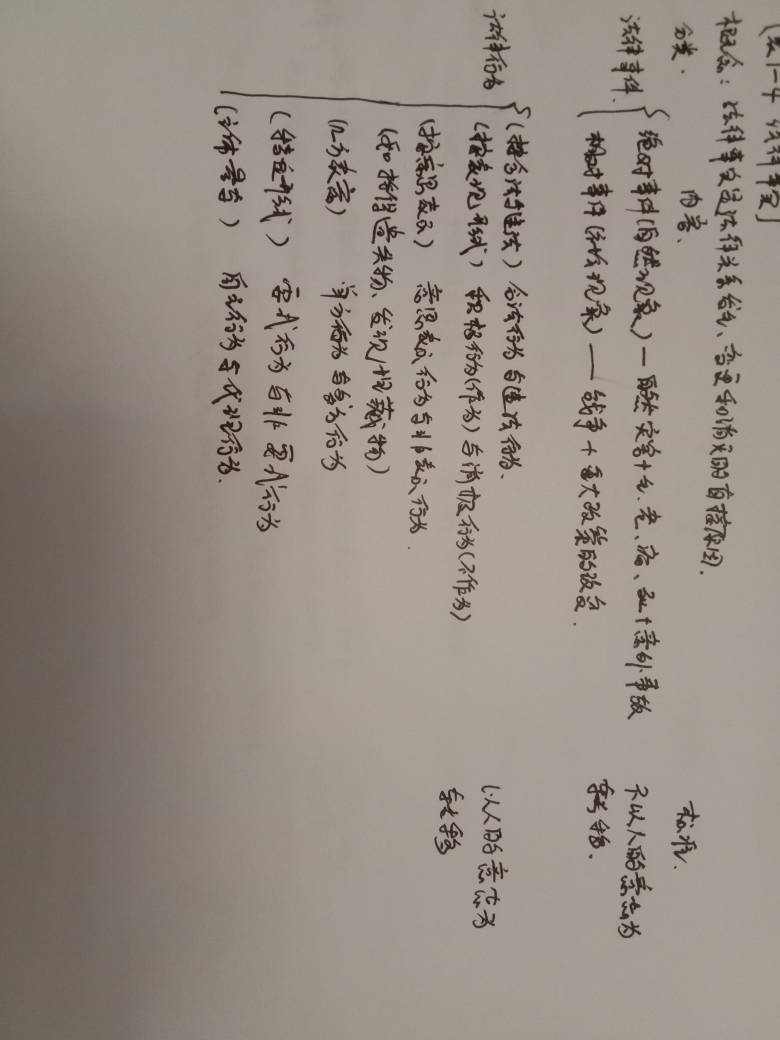 (表1-4 法律事实]
概念：法律事实是法律关系发生、变更和消灭的直接原因.
分类. 内容、 标准.
法律事件. { 绝对事件(自然现象) — 自然灾害+生、老、病、死+意外事故 不以人的意志为
相对事件(社会现象) —— 战争+重大政策的改变. 转移.
法律行为 { (按合法与违法) 合法行为与违法行为.
(按表现形式) 积极行为(作为)与消极行为(不作为) 以人的意志为
(按意思表示) 意思表示行为与非表示行为. 转移
(如拾得遗失物、发现埋藏物)
单方行为与多方行为
(特定形式) 要式行为与非要式行为
自主行为与代理行为.